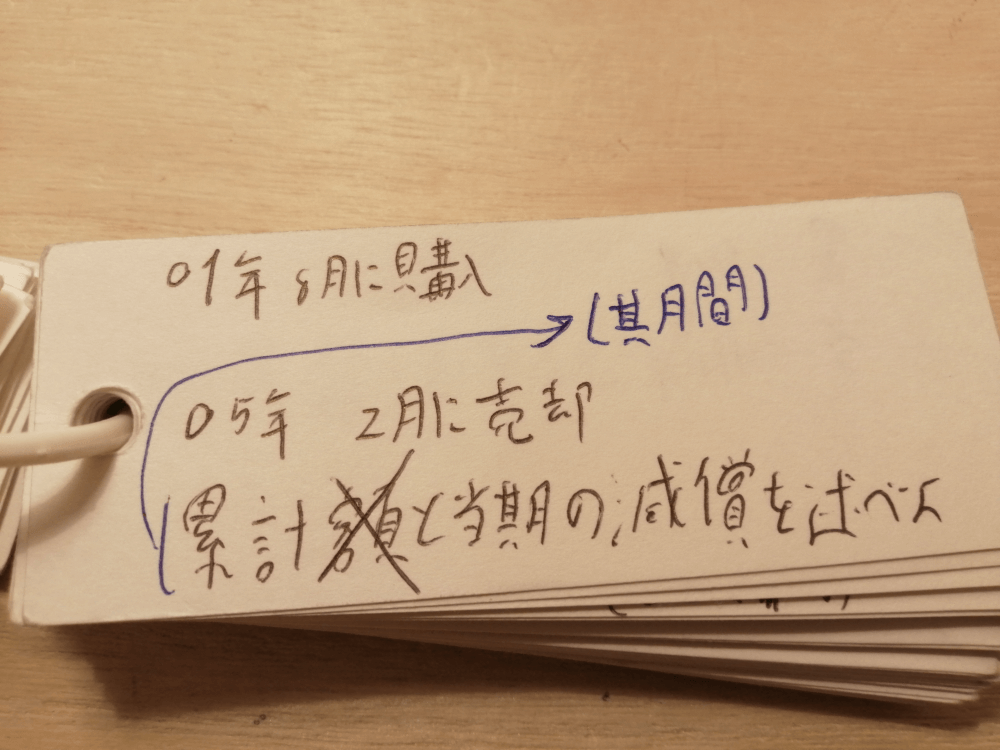 01年 8月に購入
(其月間)
05年 2月に売却
累計額と当期の減償を述べよ